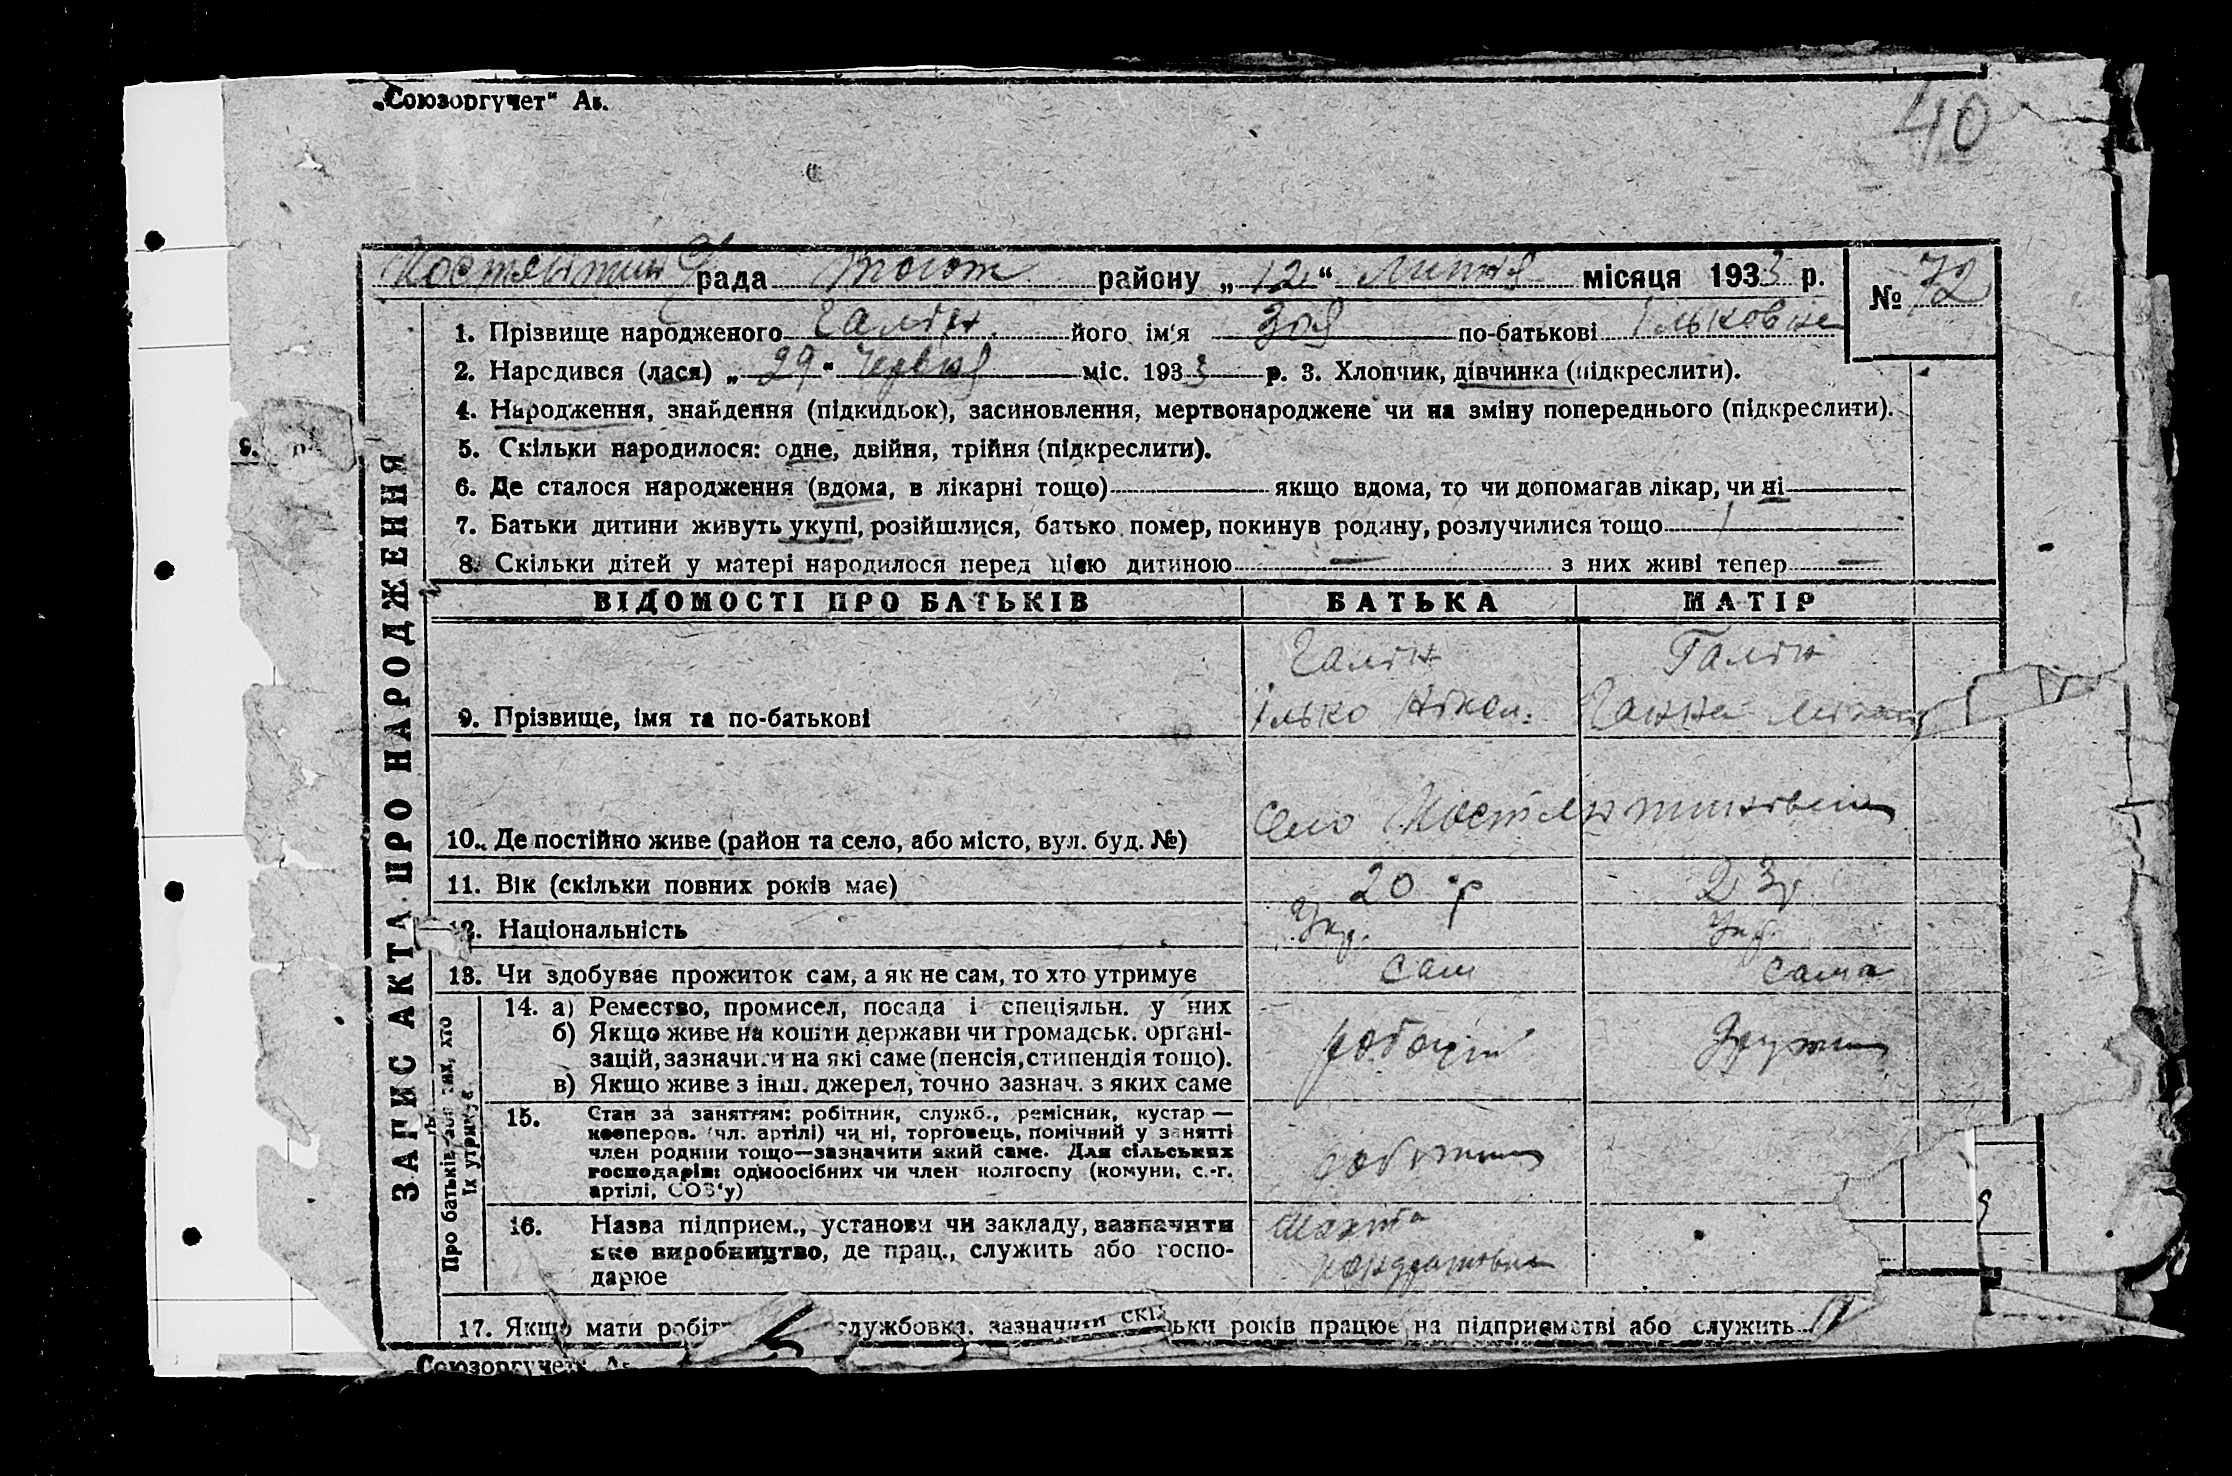 „Союзоргучет“ Ав.
40
рада района „12“ Липня місяця 1933 р.
№ 72
1. Прізвище народженого Галін його ім'я Зоя по-батькові Ільковне
2. Народився (лася) „29“ Червня міс. 1933 р. 3. Хлопчик, дівчинка (підкреслити).
4. Народження, знайдення (підкидьок), засиновлення, мертвонароджене чи на зміну попереднього (підкреслити).
5. Скільки народилося: одне, двійня, трійня (підкреслити).
6. Де сталося народження (вдома, в лікарні тощо) якщо вдома, то чи допомагав лікар, чи ні
7. Батьки дитини живуть укупі, розійшлися, батько помер, покинув родину, розлучилися тощо
8. Скільки дітей у матері народилося перед цією дитиною — з них живі тепер —
ЗАПИС АКТА ПРО НАРОДЖЕННЯ
ВІДОМОСТІ ПРО БАТЬКІВ БАТЬКА МАТІР
Галін Галін
9. Прізвище, імя та по-батькові Ілько Нікол. Ганна
10. Де постійно живе (район та село, або місто, вул. буд. №) село
11. Вік (скільки повних років має) 20 р 23 р
12. Національність Укр. Укр.
13. Чи здобуває прожиток сам, а як не сам, то хто утримує сам сама
Про батьків або тих, хто
їх утримує
14. а) Ремество, промисел, посада і спеціяльн. у них
б) Якщо живе на кошти держави чи громадськ. органі-
зацій, зазначити на які саме (пенсія, стипендія тощо).
в) Якщо живе з інш. джерел, точно зазнач. з яких саме
робочій
15. Стан за заняттям: робітник, служб., ремісник, кустар —
кооперов. (чл. артілі) чи ні, торговець, помічний у занятті
член родини тощо—зазначити який саме. Для сільських
господарів: одноосібних чи член колгоспу (комуни, с.-г.
артілі, СОЗ'у)
16. Назва підприєм., установи чи закладу, зазначити
яке виробництво, де прац., служить або госпо-
дарює
Шахта
17. Якщо мати службовка, зазначити скільки років працює на підприємстві або служить
Союзоргучет Ав.